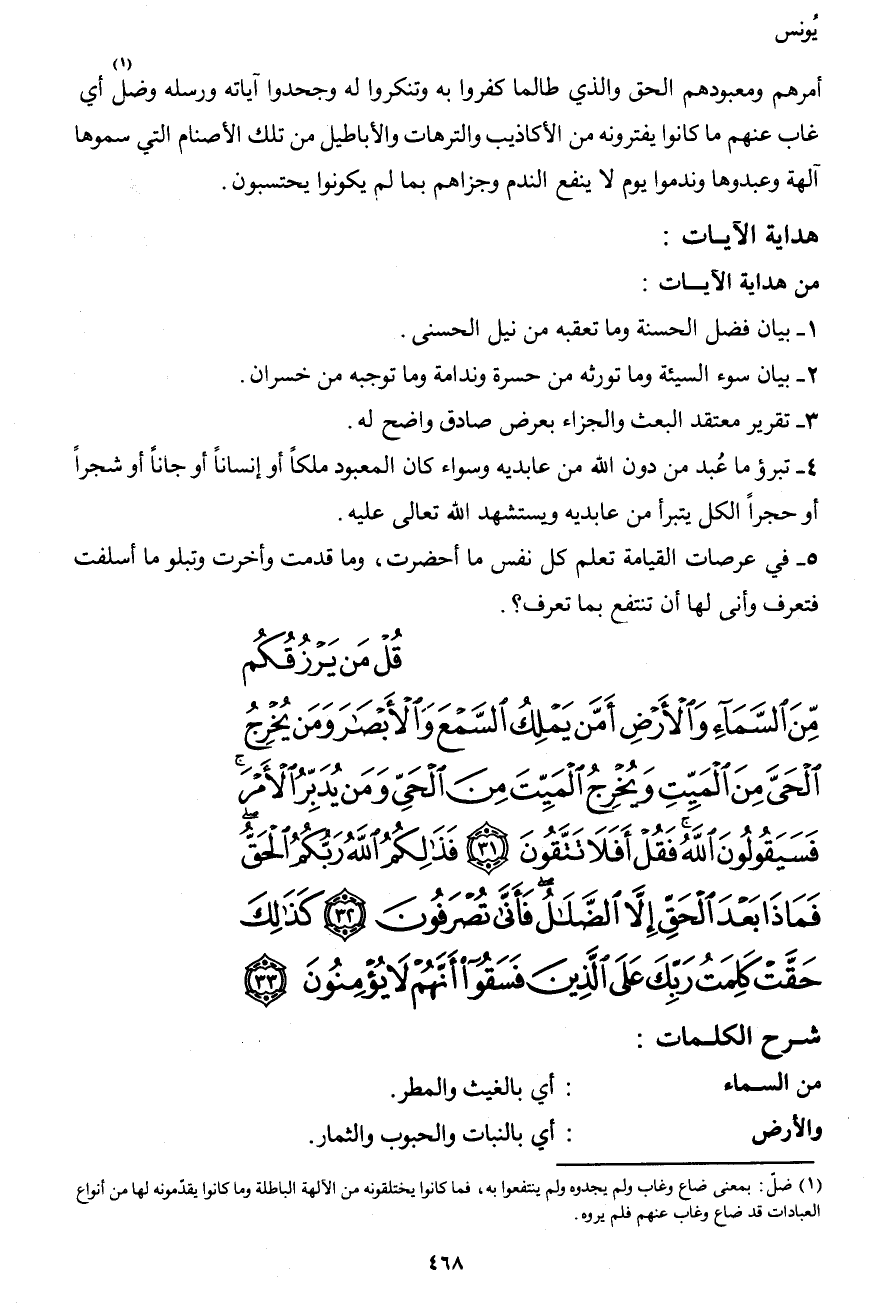 يُونس
أمرهم ومعبودهم الحق والذي طالما كفروا به وتنكروا له وجحدوا آياته ورسله وضل(١) أي
غاب عنهم ما كانوا يفترونه من الأكاذيب والترهات والأباطيل من تلك الأصنام التي سموها
آلهة وعبدوها وندموا يوم لا ينفع الندم وجزاهم بما لم يكونوا يحتسبون.
هداية الآيـات :
من هداية الآيـــات :
١ـ بيان فضل الحسنة وما تعقبه من نيل الحسنى.
٢ـ بيان سوء السيئة وما تورثه من حسرة وندامة وما توجبه من خسران.
٣ـ تقرير معتقد البعث والجزاء بعرض صادق واضح له.
٤ـ تبرؤ ما عُبد من دون الله من عابديه وسواء كان المعبود ملكاً أو إنساناً أو جاناً أو شجراً
أو حجراً الكل يتبرأ من عابديه ويستشهد الله تعالى عليه.
٥ـ في عرصات القيامة تعلم كل نفس ما أحضرت، وما قدمت وأخرت وتبلو ما أسلفت
فتعرف وأنى لها أن تنتفع بما تعرف؟.
قُلْ مَن يَرْزُقُكُم
مِّنَ ٱلسَّمَآءِ وَٱلْأَرْضِ أَمَّن يَمْلِكُ ٱلسَّمْعَ وَٱلْأَبْصَٰرَ وَمَن يُخْرِجُ
ٱلْحَىَّ مِنَ ٱلْمَيِّتِ وَيُخْرِجُ ٱلْمَيِّتَ مِنَ ٱلْحَىِّ وَمَن يُدَبِّرُ ٱلْأَمْرَۚ
فَسَيَقُولُونَ ٱللَّهُۚ فَقُلْ أَفَلَا تَتَّقُونَ ﴿٣١﴾ فَذَٰلِكُمُ ٱللَّهُ رَبُّكُمُ ٱلْحَقُّۖ
فَمَاذَا بَعْدَ ٱلْحَقِّ إِلَّا ٱلضَّلَٰلُۖ فَأَنَّىٰ تُصْرَفُونَ ﴿٣٢﴾ كَذَٰلِكَ
حَقَّتْ كَلِمَتُ رَبِّكَ عَلَى ٱلَّذِينَ فَسَقُوٓا۟ أَنَّهُمْ لَا يُؤْمِنُونَ ﴿٣٣﴾
شـرح الكلـمات :
من السـماء : أي بالغيث والمطر.
والأرض : أي بالنبات والحبوب والثمار.
(١) ضلّ: بمعنى ضاع وغاب ولم يجدوه ولم ينتفعوا به، فما كانوا يختلقونه من الآلهة الباطلة وما كانوا يقدّمونه لها من أنواع
العبادات قد ضاع وغاب عنهم فلم يروه.
٤٦٨